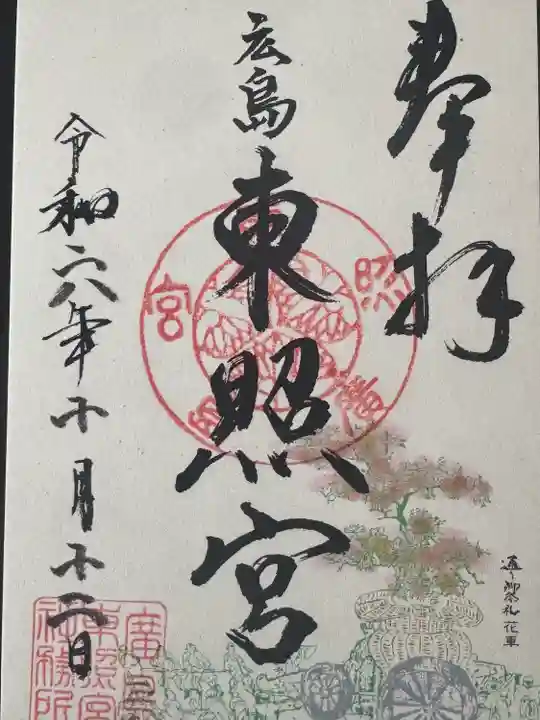 奉拝
広島
東照宮
令和六年十月十二日
通り御祭礼 花車
廣島
東照宮
社務所